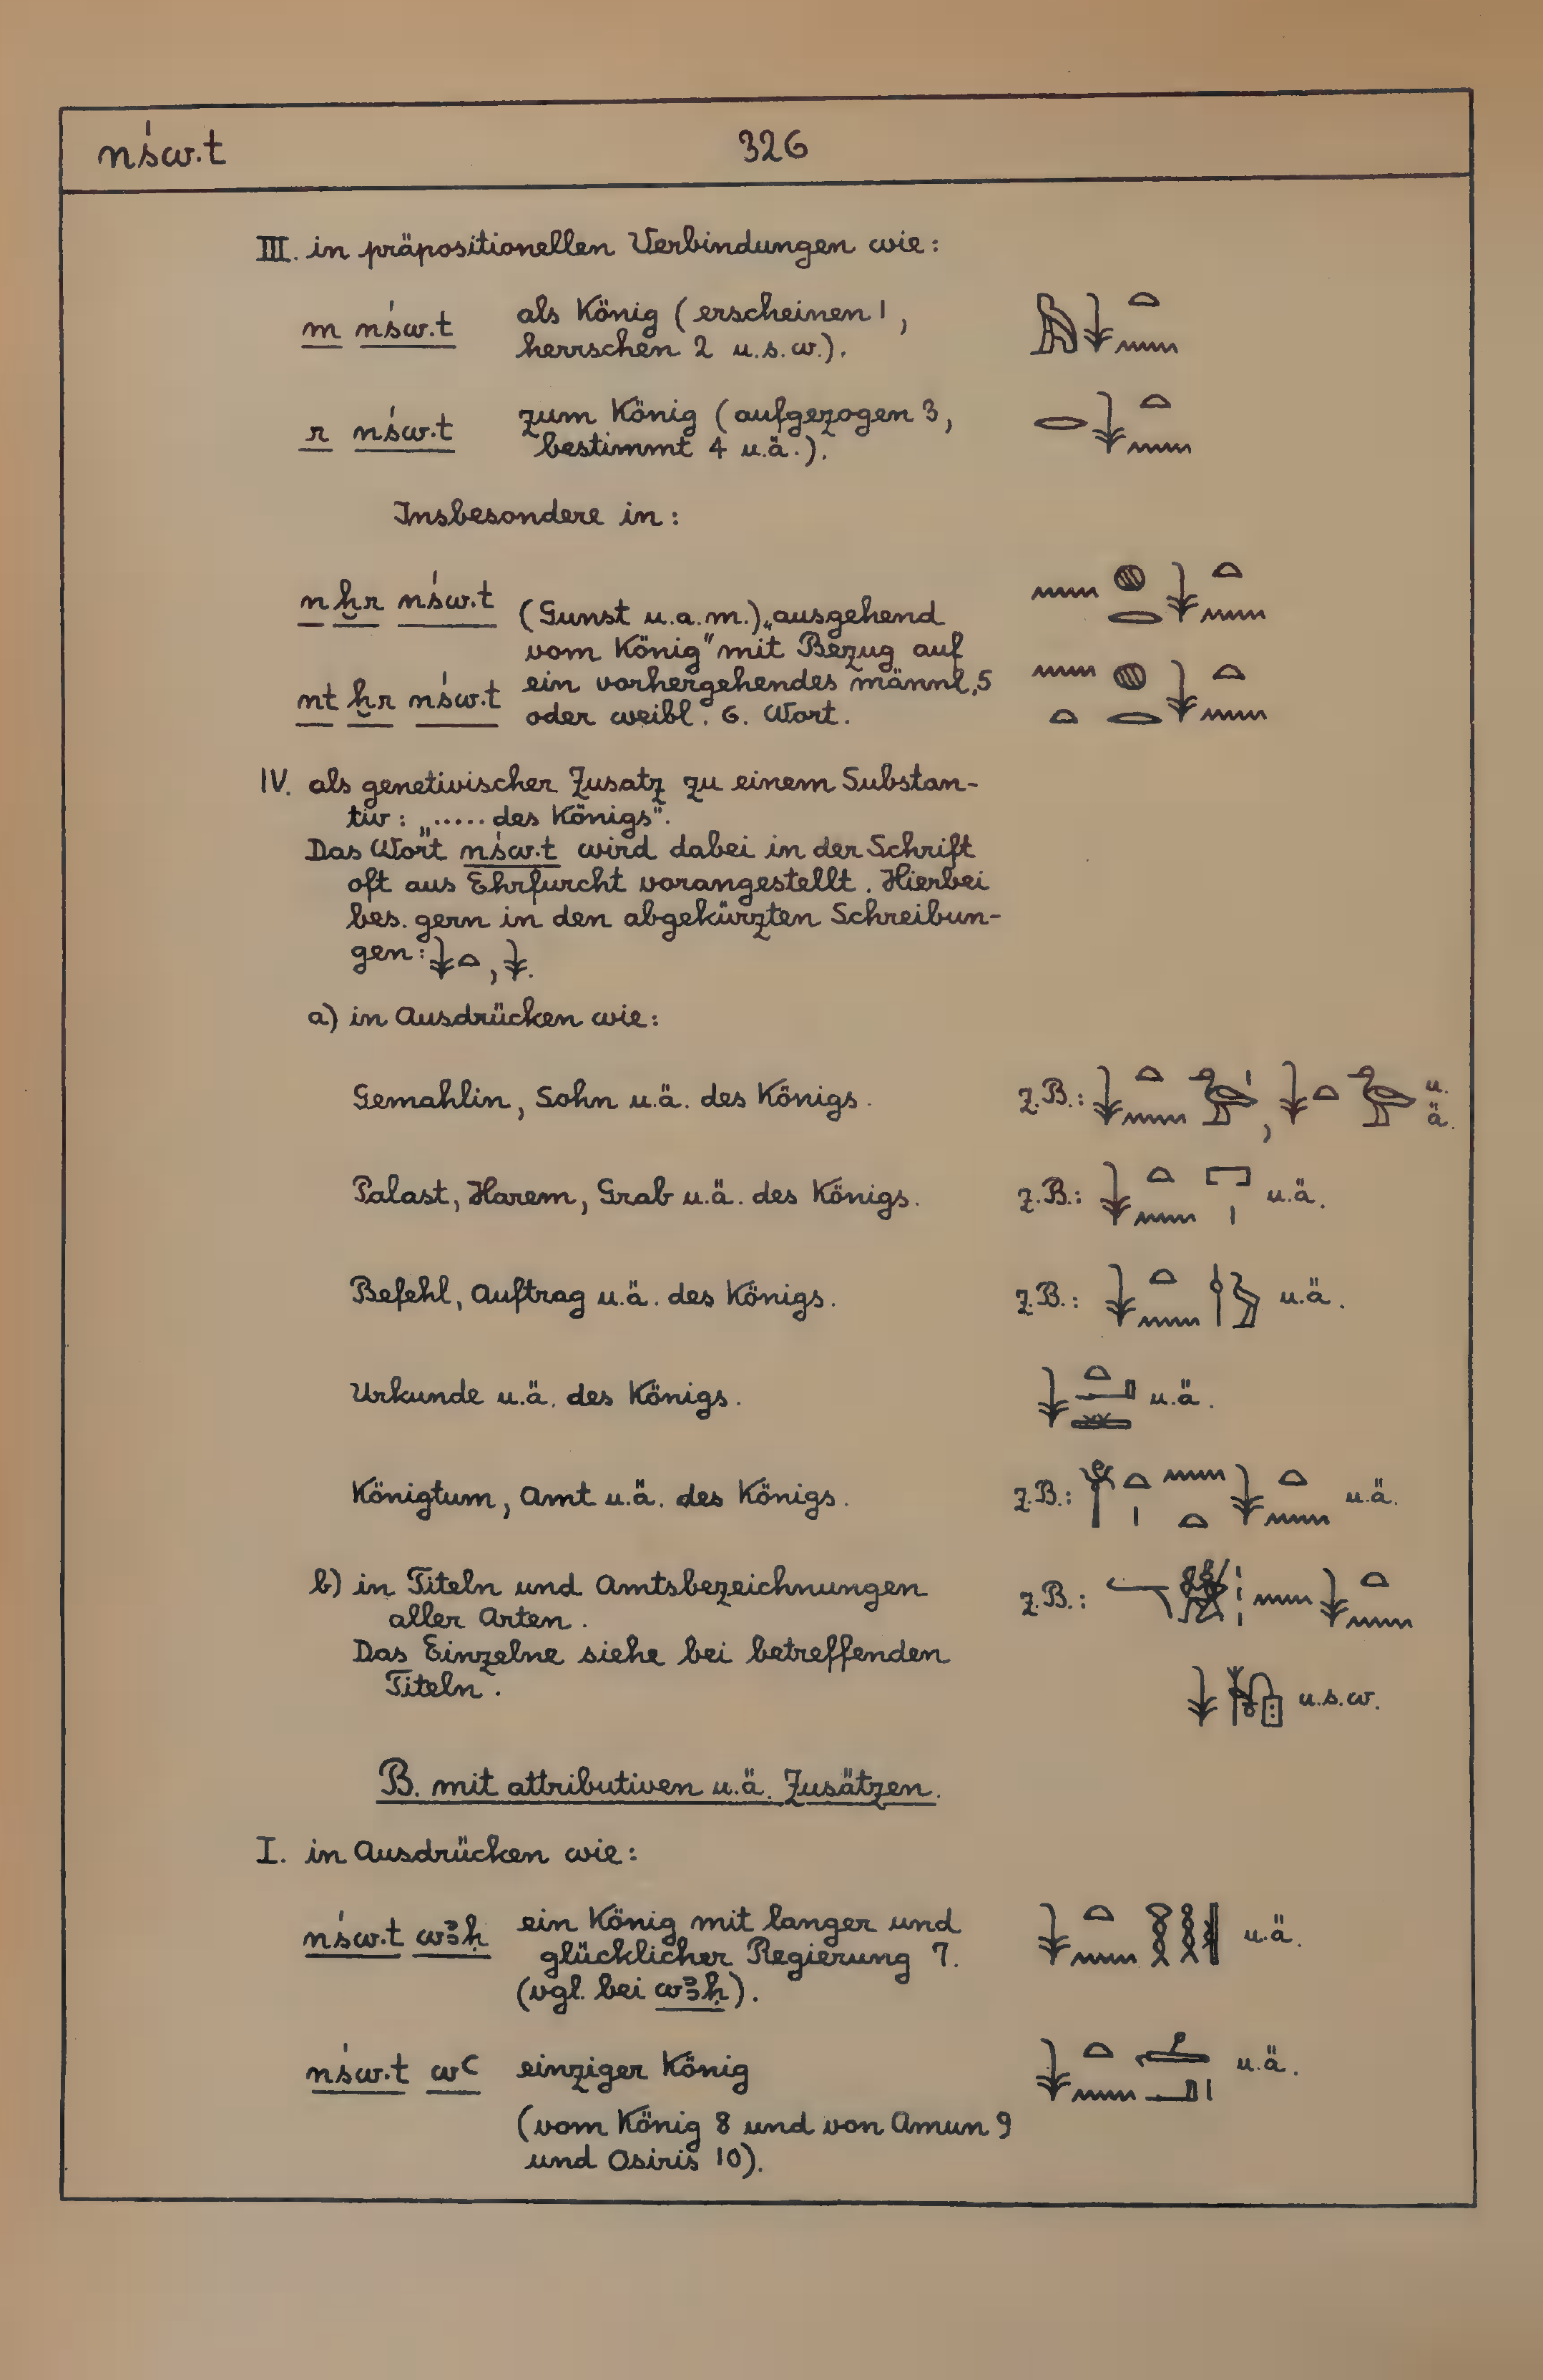 nśw.t 326
III. in präpositionellen Verbindungen wie:
m nśw.t als König (erscheinen 1,
herrschen 2 u.s.w.).
r nśw.t zum König (aufgezogen 3,
bestimmt 4 u.ä.).
Insbesondere in:
n ḫr nśw.t (Gunst u.a.m.) „ausgehend
vom König" mit Bezug auf
nt ḫr nśw.t ein vorhergehendes männl. 5
oder weibl. 6. Wort.
IV. als genetivischer Zusatz zu einem Substan-
tiv: „..... des Königs".
Das Wort nśw.t wird dabei in der Schrift
oft aus Ehrfurcht vorangestellt. Hierbei
bes. gern in den abgekürzten Schreibun-
gen: 𓇓𓏏, 𓇓.
a) in Ausdrücken wie:
Gemahlin, Sohn u.ä. des Königs. z.B.: 𓇓𓏏𓈖𓅭𓏤, 𓇓𓏏𓅭 u.ä.
Palast, Harem, Grab u.ä. des Königs. z.B.: 𓇓𓏏𓈖𓉐𓏤 u.ä.
Befehl, Auftrag u.ä. des Königs. z.B.: 𓇓𓏏𓈖 u.ä.
Urkunde u.ä. des Königs. 𓇓𓏏𓂝 u.ä.
Königtum, Amt u.ä. des Königs. z.B.: u.ä.
b) in Titeln und Amtsbezeichnungen z.B.:
aller Arten.
Das Einzelne siehe bei betreffenden
Titeln. u.s.w.
B. mit attributiven u.ä. Zusätzen.
I. in Ausdrücken wie:
nśw.t wꜣḥ ein König mit langer und 𓇓𓏏𓈖 u.ä.
glücklicher Regierung 7.
(vgl. bei wꜣḥ).
nśw.t wꜥ einziger König 𓇓𓏏𓈖𓌡𓂝𓏤 u.ä.
(vom König 8 und von Amun 9
und Osiris 10).